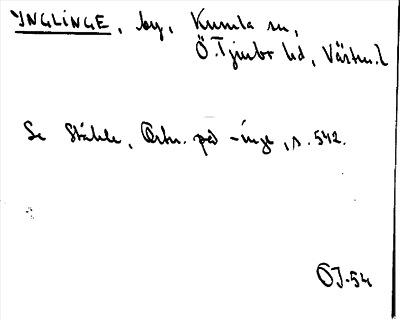 YNGLINGE, by, Kumla sn,
Ö. Tjurbo hd, Västm. l
Se Ståhle, Ortn. på -inge, s. 542.
ÖJ-54